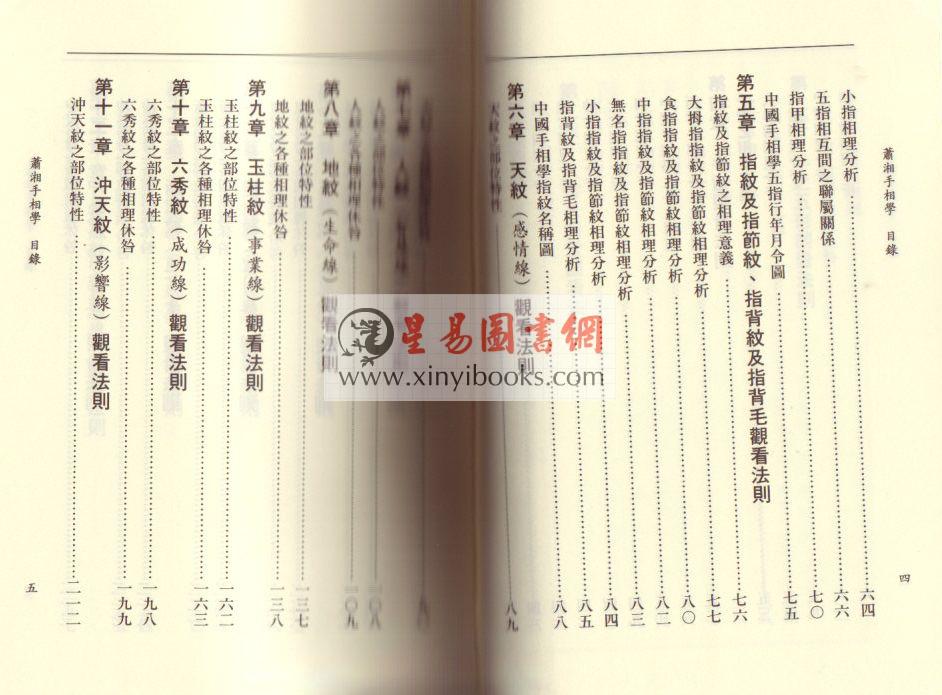 蕭湘手相學 目錄
小指相理分析……六四
五指相互間之聯屬關係……六六
指甲相理分析……七〇
中國手相學五指行年月令圖……七五
第五章 指紋及指節紋、指背紋及指背毛觀看法則……七六
指紋及指節紋之相理意義……七七
大拇指指紋及指節紋相理分析……八〇
食指指紋及指節紋相理分析……八二
中指指紋及指節紋相理分析……八三
無名指指紋及指節紋相理分析……八四
小指指紋及指節紋相理分析……八五
指背紋及指背毛相理分析……八八
中國手相學指紋名稱圖
第六章 天紋（感情線）觀看法則……八九
天紋之部位特性
四
人紋之部位特性……一〇八
人紋之各種相理休咎……一〇九
第八章 地紋（生命線）觀看法則
地紋之部位特性……一三七
地紋之各種相理休咎……一三八
第九章 玉柱紋（事業線）觀看法則
玉柱紋之部位特性……一六二
玉柱紋之各種相理休咎……一六三
第十章 六秀紋（成功線）觀看法則
六秀紋之部位特性……一九八
六秀紋之各種相理休咎……一九九
第十一章 沖天紋（影響線）觀看法則
沖天紋之部位特性……二一二
蕭湘手相學 目錄
五
星易圖書網
www.xinyibooks.com